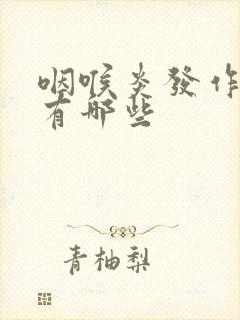 咽喉炎發作
有哪些
青柚梨